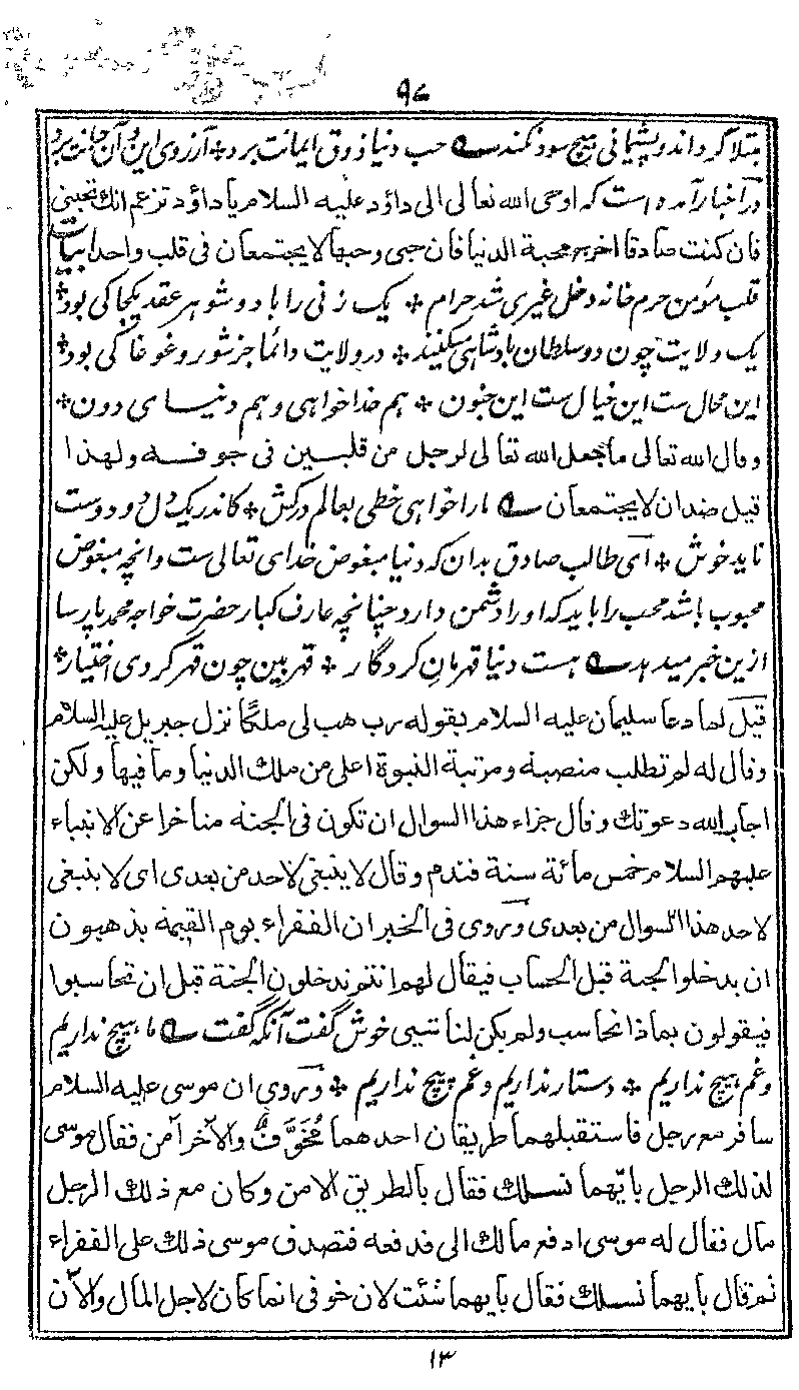 ۹۷
مبتلا گرداند و پشیمانی هیچ سود نکند ؎ حب دنیا ذوق ایمانت برد * آرزوی این و آن جانت برد
در اخبار آمده است که اوحی الله تعالی الی داؤد علیه السلام یا داؤد تزعم انك تحبنی
فان کنت صادقا اخرج محبة الدنیا فان حبی وحبها لا یجتمعان فی قلب واحد ابیات
قلب مؤمن حرم خانه دخل غیری شد حرام * یک زنی را با دو شوهر عقد یکجا کی بود *
یک ولایت چون دو سلطان بادشاهی میکنند * در ولایت دائما جز شور و غوغا کی بود *
این محال ست این خیال ست این جنون * هم خدا خواهی و هم دنیای دون *
وقال الله تعالی ما جعل الله تعالی لرجل من قلبین فی جوفه ولهذا
قیل ضدان لا یجتمعان ؎ ما را خواهی خطی بعالم درکش * کاندر یک دل دو دوست
ناید خوش * ای طالب صادق بدان که دنیا مبغوض خدای تعالی ست وانچه مبغوض
محبوب باشد محب را باید که او را دشمن دارد چنانچه عارف کبار حضرت خواجه محمد پارسا
ازین خبر میدهد ؎ هست دنیا قهرمان کردگار * قهر بین چون قهر کردی اختیار *
قیل لما دعا سلیمان علیه السلام بقوله رب هب لی ملکًا نزل جبریل علیه السلام
وقال له لم تطلب منصبه ومرتبة النبوة اعلی من ملك الدنیا وما فیها ولکن
اجاب الله دعوتك وقال جزاء هذا السوال ان تکون فی الجنة متأخرا عن الانبیاء
علیهم السلام خمس مائة سنة فندم وقال لا ینبغی لاحد من بعدی ای لا ینبغی
لاحد هذا السوال من بعدی وروی فی الخبر ان الفقراء یوم القیمة یذهبون
ان یدخلوا الجنة قبل الحساب فیقال لهم انتم تدخلون الجنة قبل ان تحاسبوا
فیقولون بماذا نحاسب ولم یکن لنا شیئ خوش گفت آنکه گفت ؎ ما هیچ نداریم
وغم هیچ نداریم * دستار نداریم وغم پیچ نداریم * وروی ان موسی علیه السلام
سافر مع رجل فاستقبلهما طریقان احدهما مُخَوَّفٌ والآخر آمن فقال موسی
لذلك الرجل بایّهما نسلك فقال بالطریق الامن وکان مع ذلك الرجل
مال فقال له موسی ادفع مالك الی فدفعه فتصدق موسی ذلك علی الفقراء
ثم قال بایهما نسلك فقال بایهما شئت لان خوفی انما کان لاجل المال والآن
۱۳